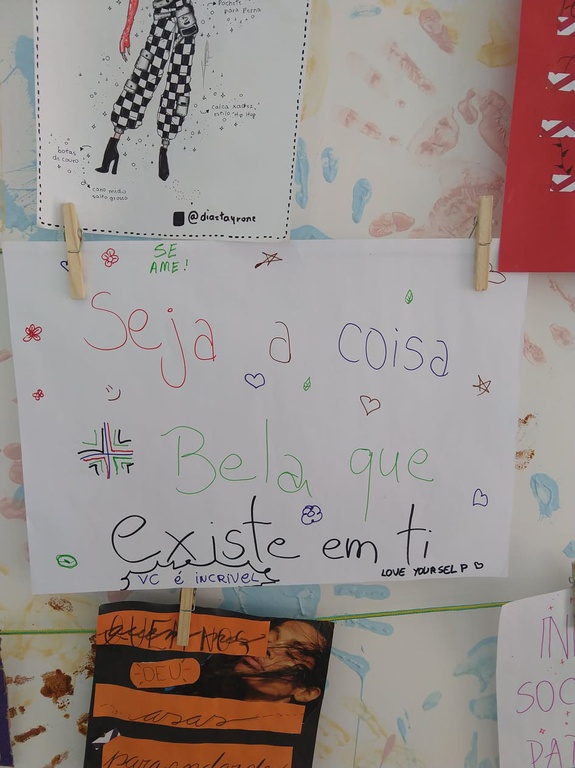 pochete
para Perna
calça xadrez
estilo "Hip Hop"
botas
de couro
cano médio
salto grosso
@diastayrone
SE
AME!
Seja a coisa
Bela que
existe em ti
VC é INCRIVEL
LOVE YOURSELF
QUEM NOS
DEU
asas
para andar
IN
SOC
PA